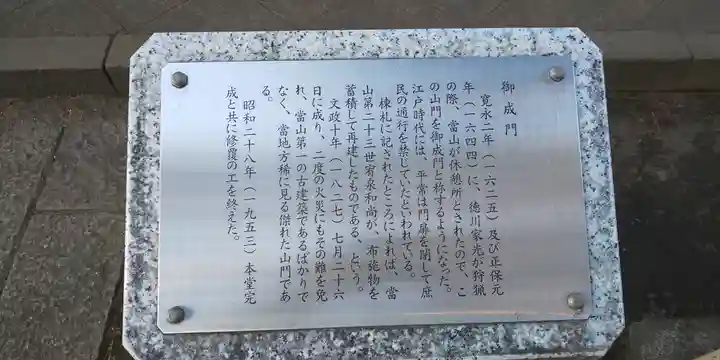 御成門
寛永二年（一六二五）及び正保元
年（一六四四）に、徳川家光が狩猟
の際、當山が休憩所とされたので、こ
の山門を御成門と称するようになった。
江戸時代には、平常は門扉を閉して庶
民の通行を禁していたといわれている。
棟札に記されたところによれば、當
山第二十三世宥泉和尚が、布施物を
蓄積して再建したものである、という。
文政十年（一八二七）七月二十六
日に成り、二度の火災にもその難を免
れ、當山第一の古建築であるばかりで
なく、當地方稀に見る傑れた山門であ
る。
昭和二十八年（一九五三）本堂完
成と共に修覆の工を終えた。